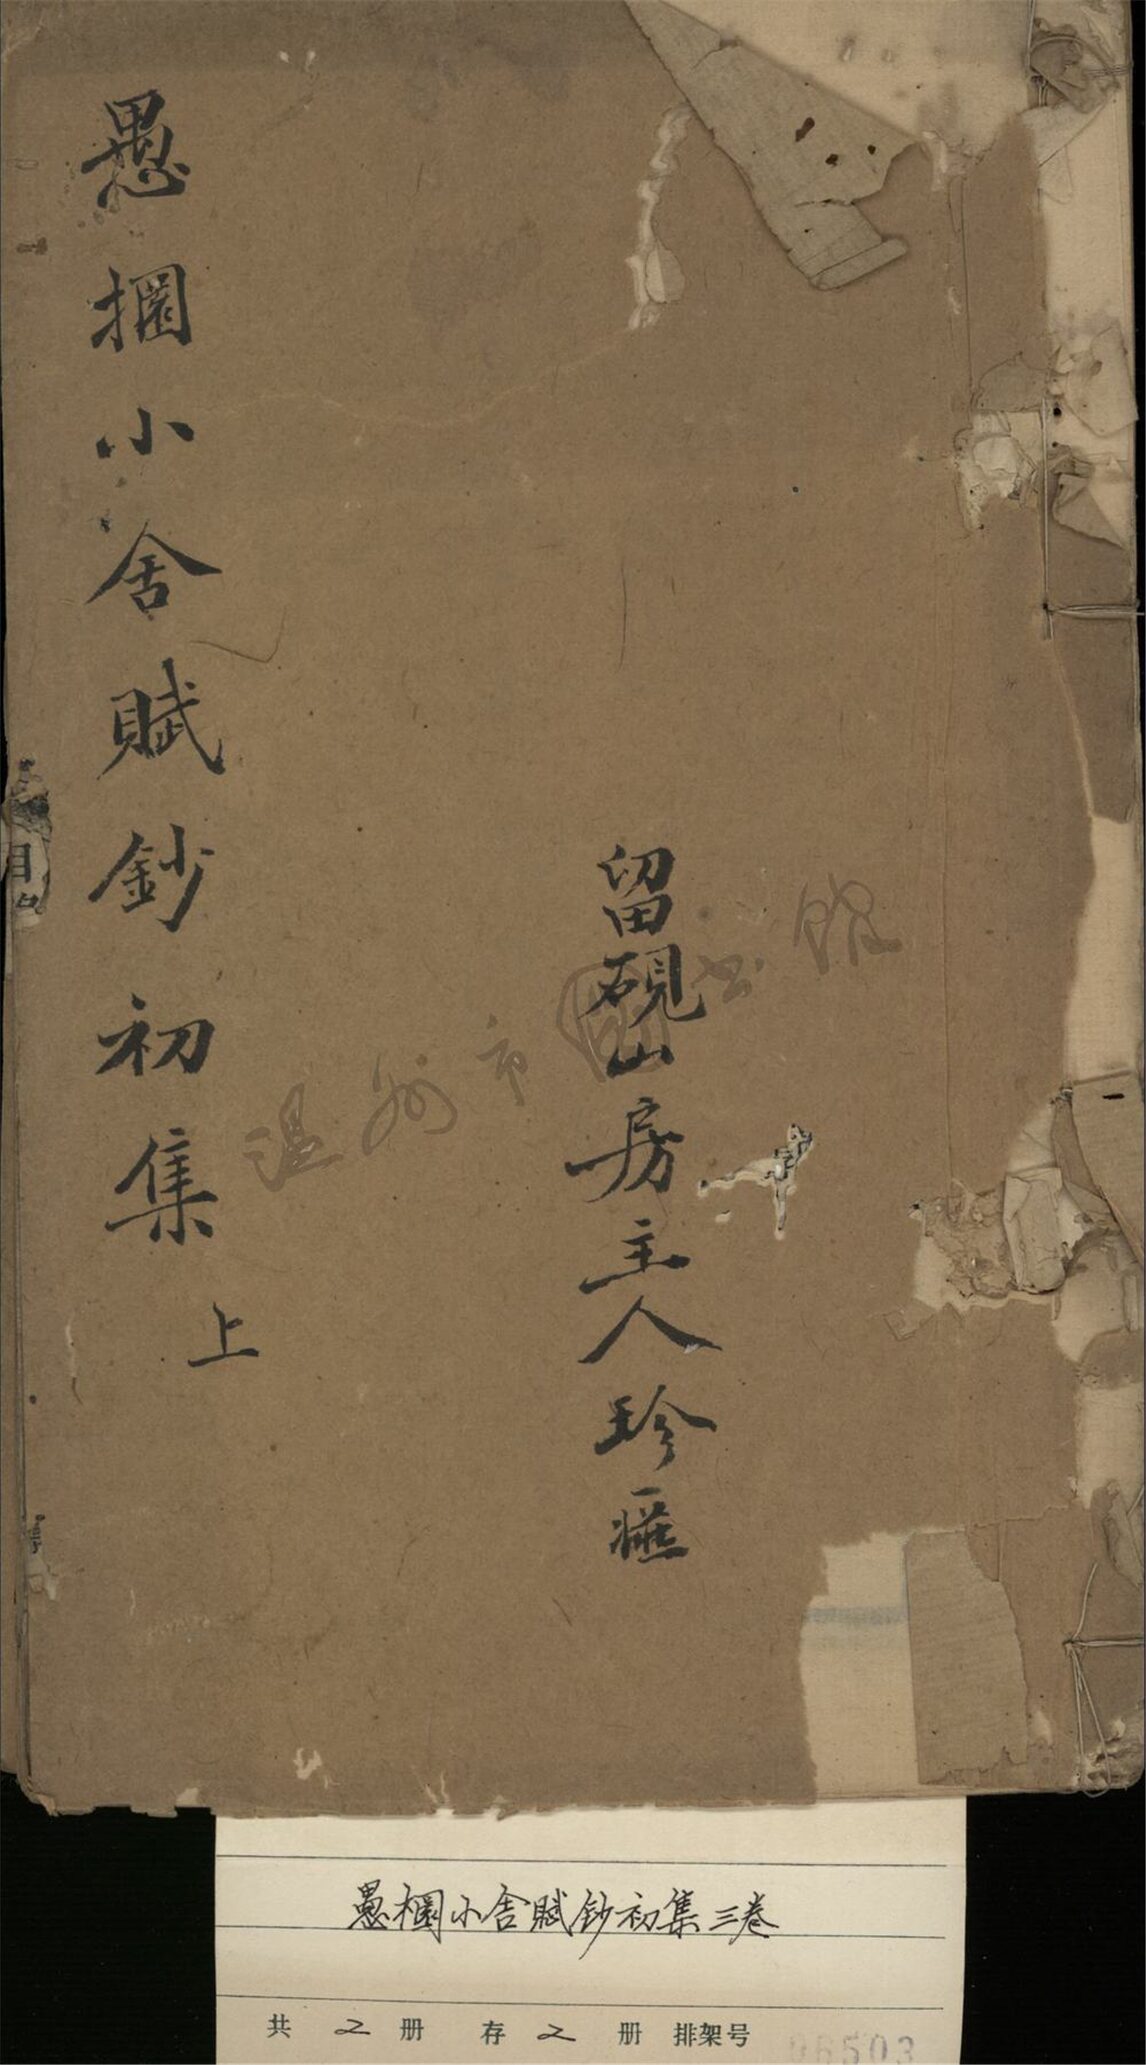 留硯山房主人珍
愚小舍賦鈔初集 上
温州市圖书館
目
愚小舍賦鈔初集三卷
共 2 册 存 2 册 排架号 06503